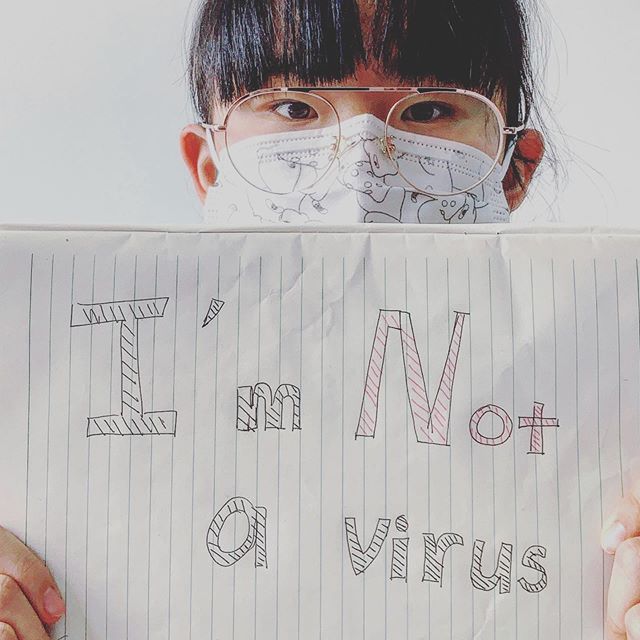 I'm Not
a virus